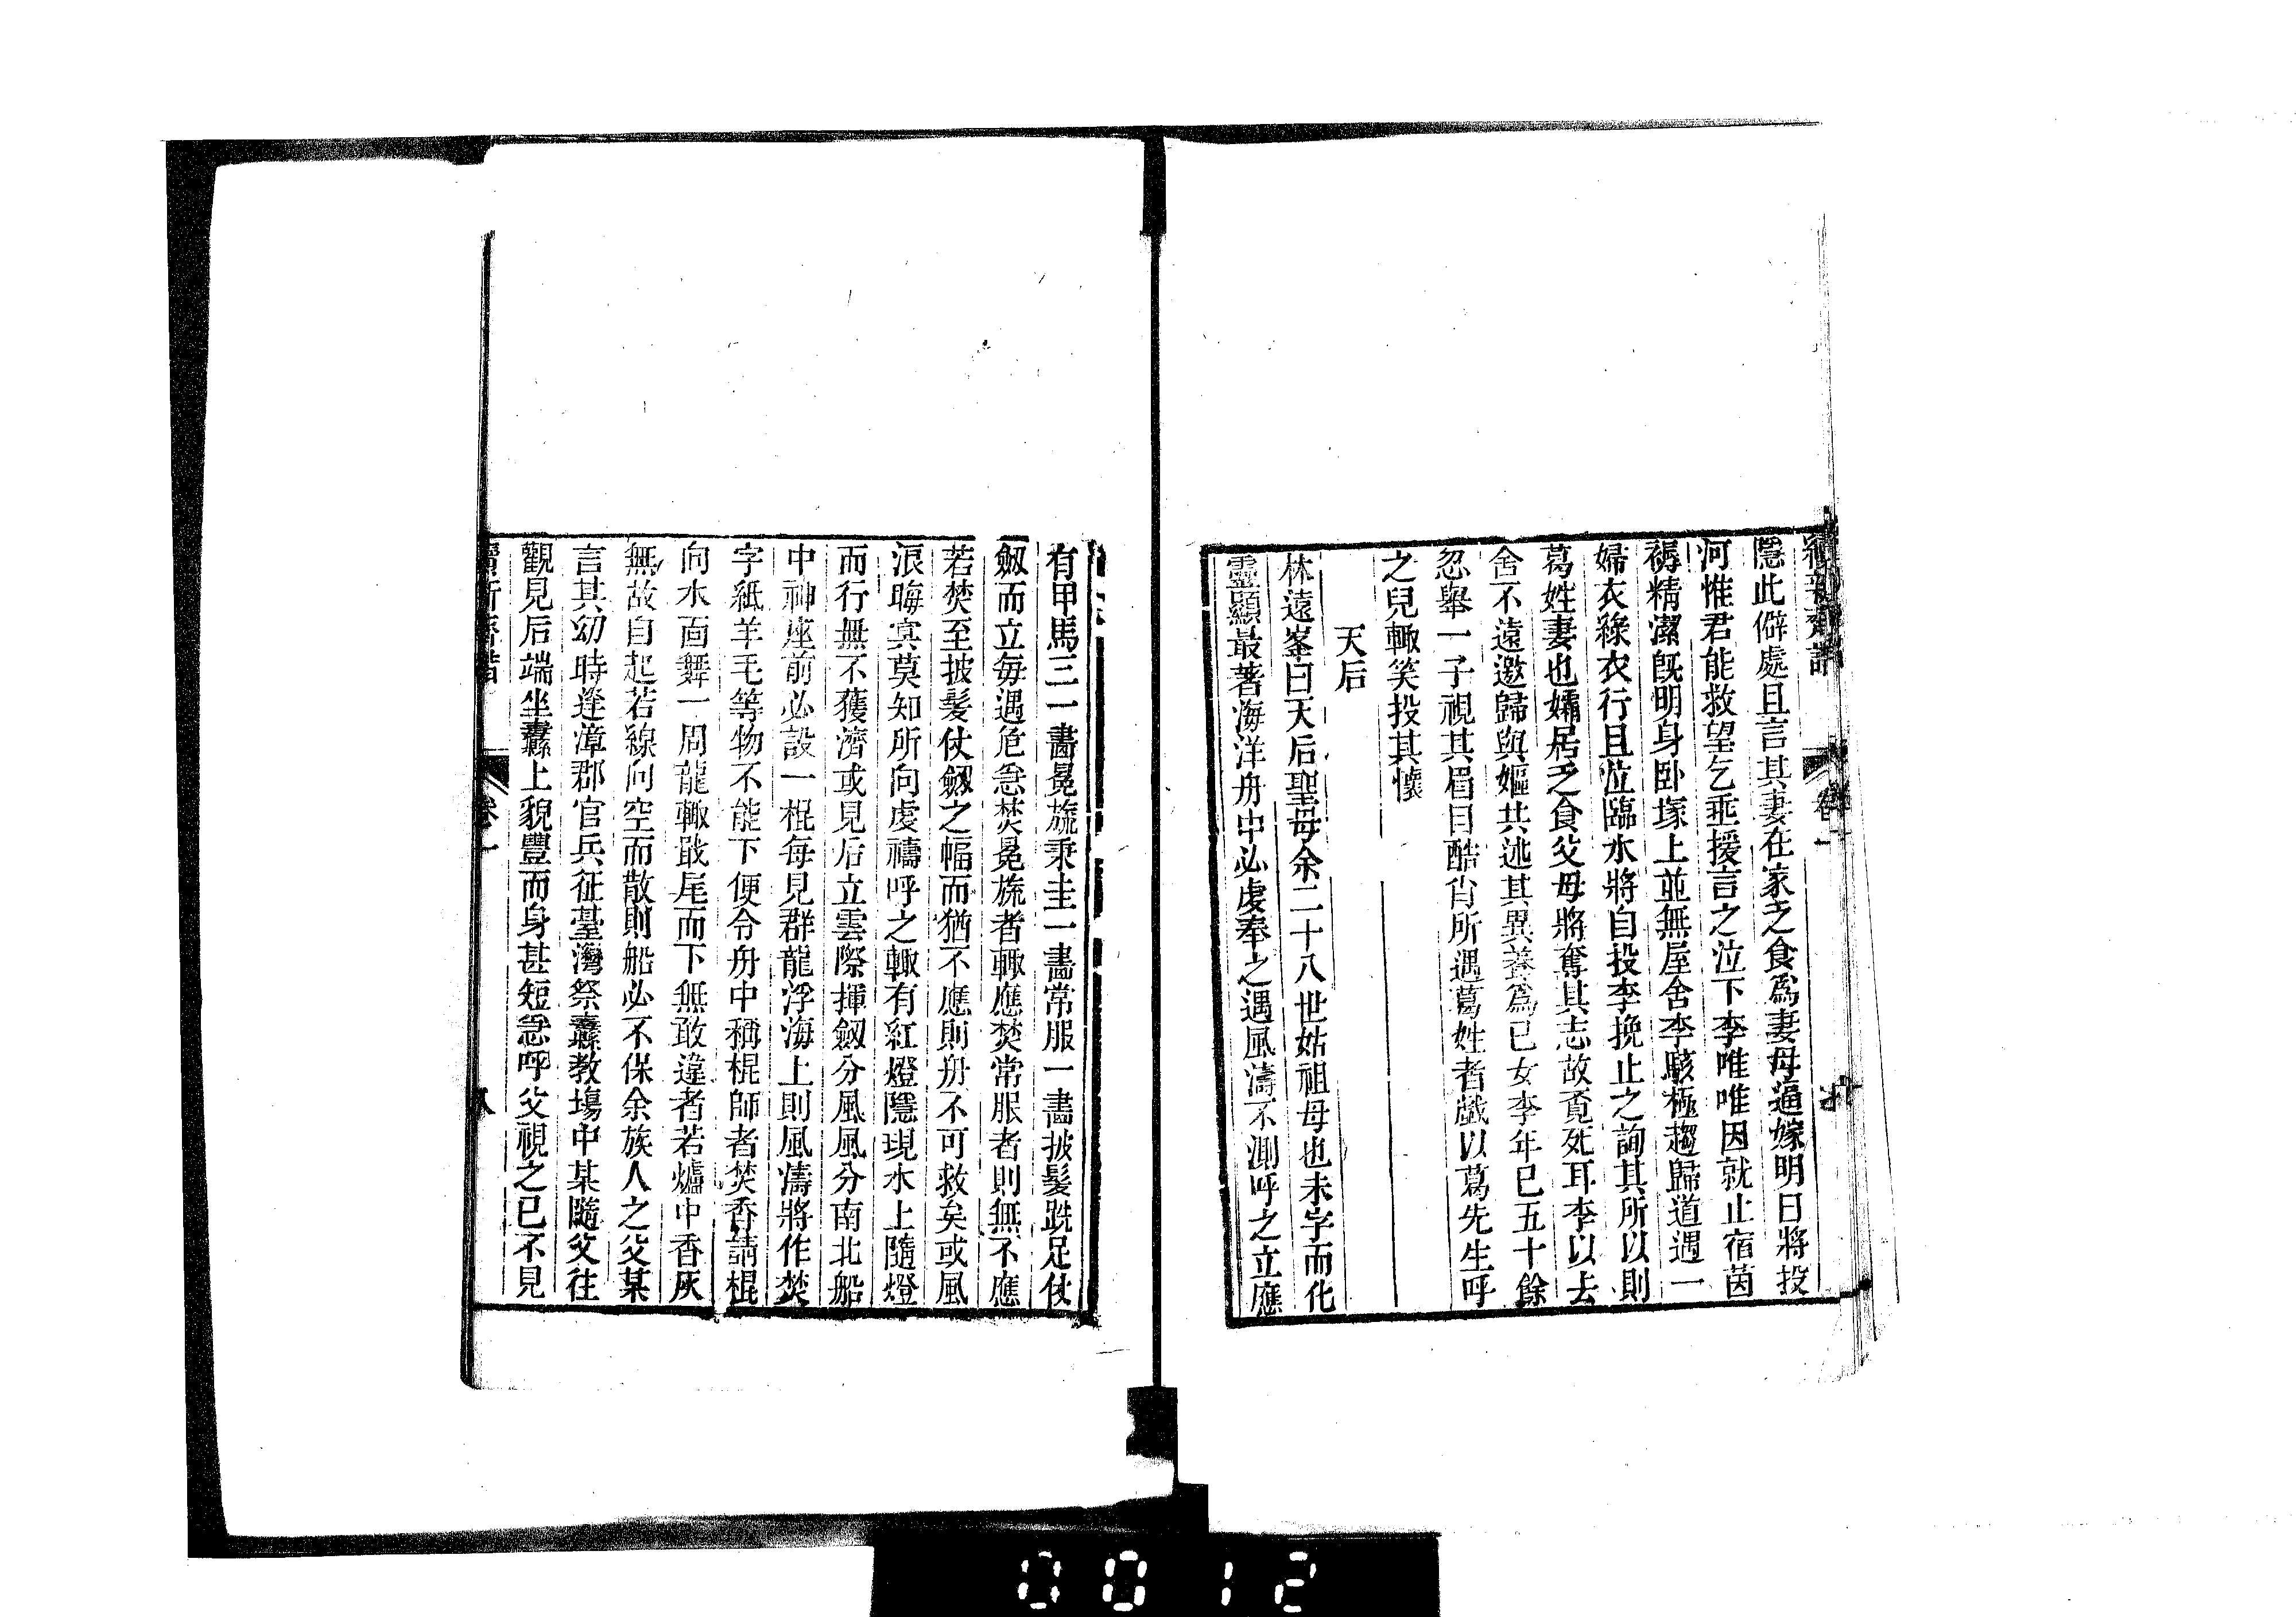 隱此僻處且言其妻在家乏食爲妻母逼嫁明日將投
河惟君能救望乞垂援言之泣下李唯唯因就止宿茵
褥精潔旣明身卧塚上並無屋舍李駭極趨歸道遇一
婦衣綠衣行且泣臨水將自投李挽止之詢其所以則
葛姓妻也孀居乏食父母將奪其志故覓死耳李以去
舍不遠邀歸與嫗共述其異養爲已女李年已五十餘
忽舉一子視其眉目酷肖所遇葛姓者戲以葛先生呼
之兒輙笑投其懷
天后
林遠峯曰天后聖母余二十八世姑祖母也未字而化
靈顯最著海洋舟中必虔奉之遇風濤不測呼之立應
有甲馬三一畵冕旒秉圭一畵常服一畵披髮跣足仗
劔而立每遇危急焚冕旒者輙應焚常服者則無不應
若焚至披髮仗劔之幅而猶不應則舟不可救矣或風
浪晦㝠莫知所向虔禱呼之輙有紅燈隱現水上隨燈
而行無不獲濟或見后立雲際揮劔分風風分南北船
中神座前必設一棍每見群龍浮海上則風濤將作焚
字紙羊毛等物不能下便令舟中稱棍師者焚香請棍
向水面舞一周龍輙戢尾而下無敢違者若爐中香灰
無故自起若線向空而散則船必不保余族人之父某
言其幼時逢漳郡官兵征臺灣祭纛教塲中某隨父往
觀見后端坐纛上貌豐而身甚短急呼父視之已不見
卷一
八
0012